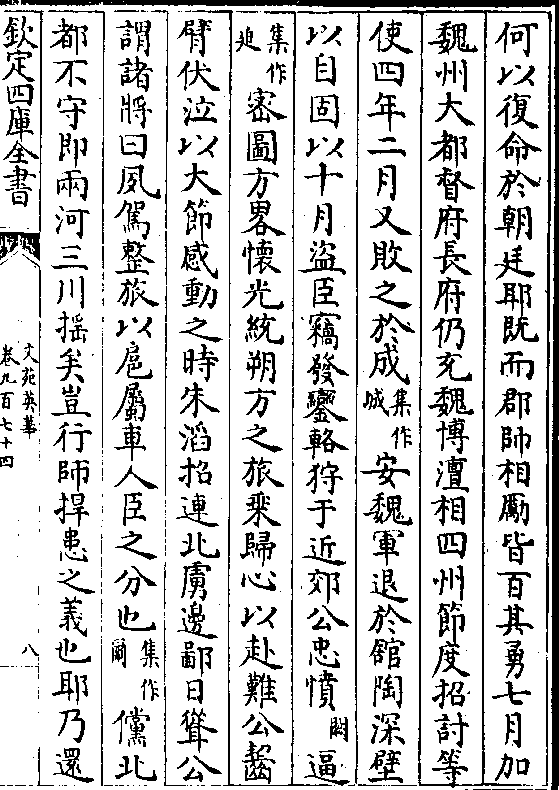 何以復命於朝廷耶既而郡帥相勵皆百其勇七月加
魏州大都督府長府仍充魏博澶相四州節度招討等
使四年二月又敗之於成集作城安魏軍退於館陶深壁
以自固以十月盜臣竊發鑾輅狩于近郊公忠憤闕逼
集作迫密圖方畧懷光統朔方之旅乘歸心以赴難公齧
臂伏泣以大節感動之時朱滔招連北虜邊鄙日聳公
謂諸將曰夙駕整旅以扈屬車人臣之分也集作爾儻北
都不守即兩河三川揺矣豈行師捍患之義也耶乃還
欽定四庫全書
文苑英華
卷九百七十四
八